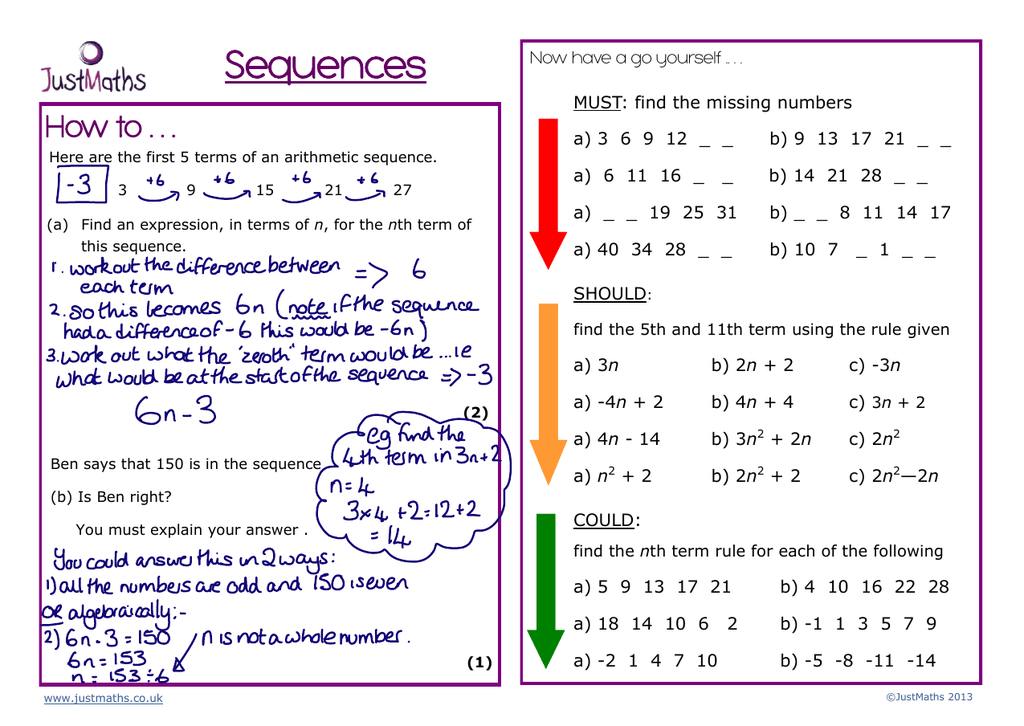 JustMaths
Sequences
How to . . .
Here are the first 5 terms of an arithmetic sequence.
+6 +6 +6 +6
-3 3 9 15 21 27
(a) Find an expression, in terms of n, for the nth term of
this sequence.
1. work out the difference between => 6
each term
2. so this becomes 6n (note if the sequence
had a difference of -6 this would be -6n)
3. work out what the "zeroth" term would be ... ie
what would be at the start of the sequence => -3
6n - 3
(2)
eg find the
4th term in 3n+2
n=4
3×4 +2=12+2
=14
Ben says that 150 is in the sequence
(b) Is Ben right?
You must explain your answer .
You could answer this in 2 ways:
1) all the numbers are odd and 150 is even
OR algebraically:-
2) 6n - 3 = 150 n is not a whole number.
6n = 153
n = 153 ÷ 6
(1)
www.justmaths.co.uk
Now have a go yourself . . . .
MUST: find the missing numbers
a) 3 6 9 12 _ _ b) 9 13 17 21 _ _
a) 6 11 16 _ _ b) 14 21 28 _ _
a) _ _ 19 25 31 b) _ _ 8 11 14 17
a) 40 34 28 _ _ b) 10 7 _ 1 _ _
SHOULD:
find the 5th and 11th term using the rule given
a) 3n b) 2n + 2 c) -3n
a) -4n + 2 b) 4n + 4 c) 3n + 2
a) 4n - 14 b) 3n² + 2n c) 2n²
a) n² + 2 b) 2n² + 2 c) 2n²—2n
COULD:
find the nth term rule for each of the following
a) 5 9 13 17 21 b) 4 10 16 22 28
a) 18 14 10 6 2 b) -1 1 3 5 7 9
a) -2 1 4 7 10 b) -5 -8 -11 -14
©JustMaths 2013